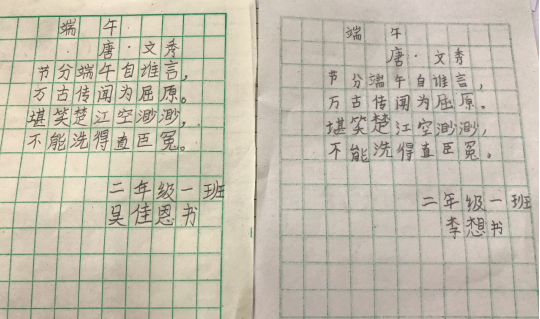 端午
唐·文秀
节分端午自谁言，
万古传闻为屈原。
堪笑楚江空渺渺，
不能洗得直臣冤。
二年级一班
吴佳恩书
端午
唐·文秀
节分端午自谁言，
万古传闻为屈原。
堪笑楚江空渺渺，
不能洗得直臣冤。
二年级一班
李想书